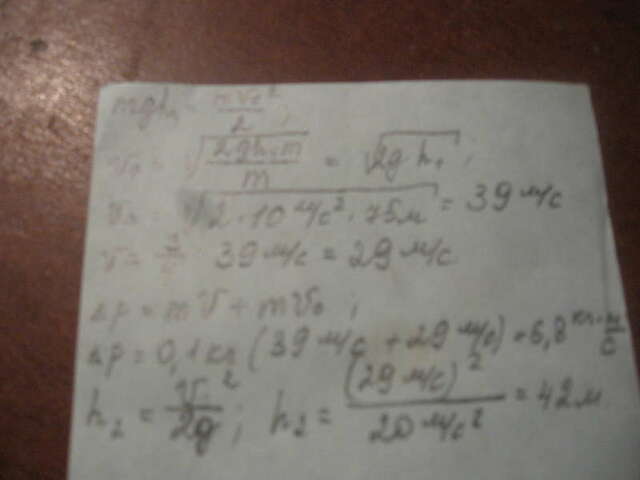 mgh₁ = mV₀²/2;
V₀ = √(2gh₁m/m) = √(2gh₁);
V₀ = √(2·10 м/с²·75м) = 39 м/с
V = 39 м/с = 29 м/с
Δp = mV + mV₀;
Δp = 0,1 кг (39 м/с + 29 м/с) = 6,8 кг·м/с
h₂ = V²/2g; h₂ = (29 м/с)²/20 м/с² = 42 м